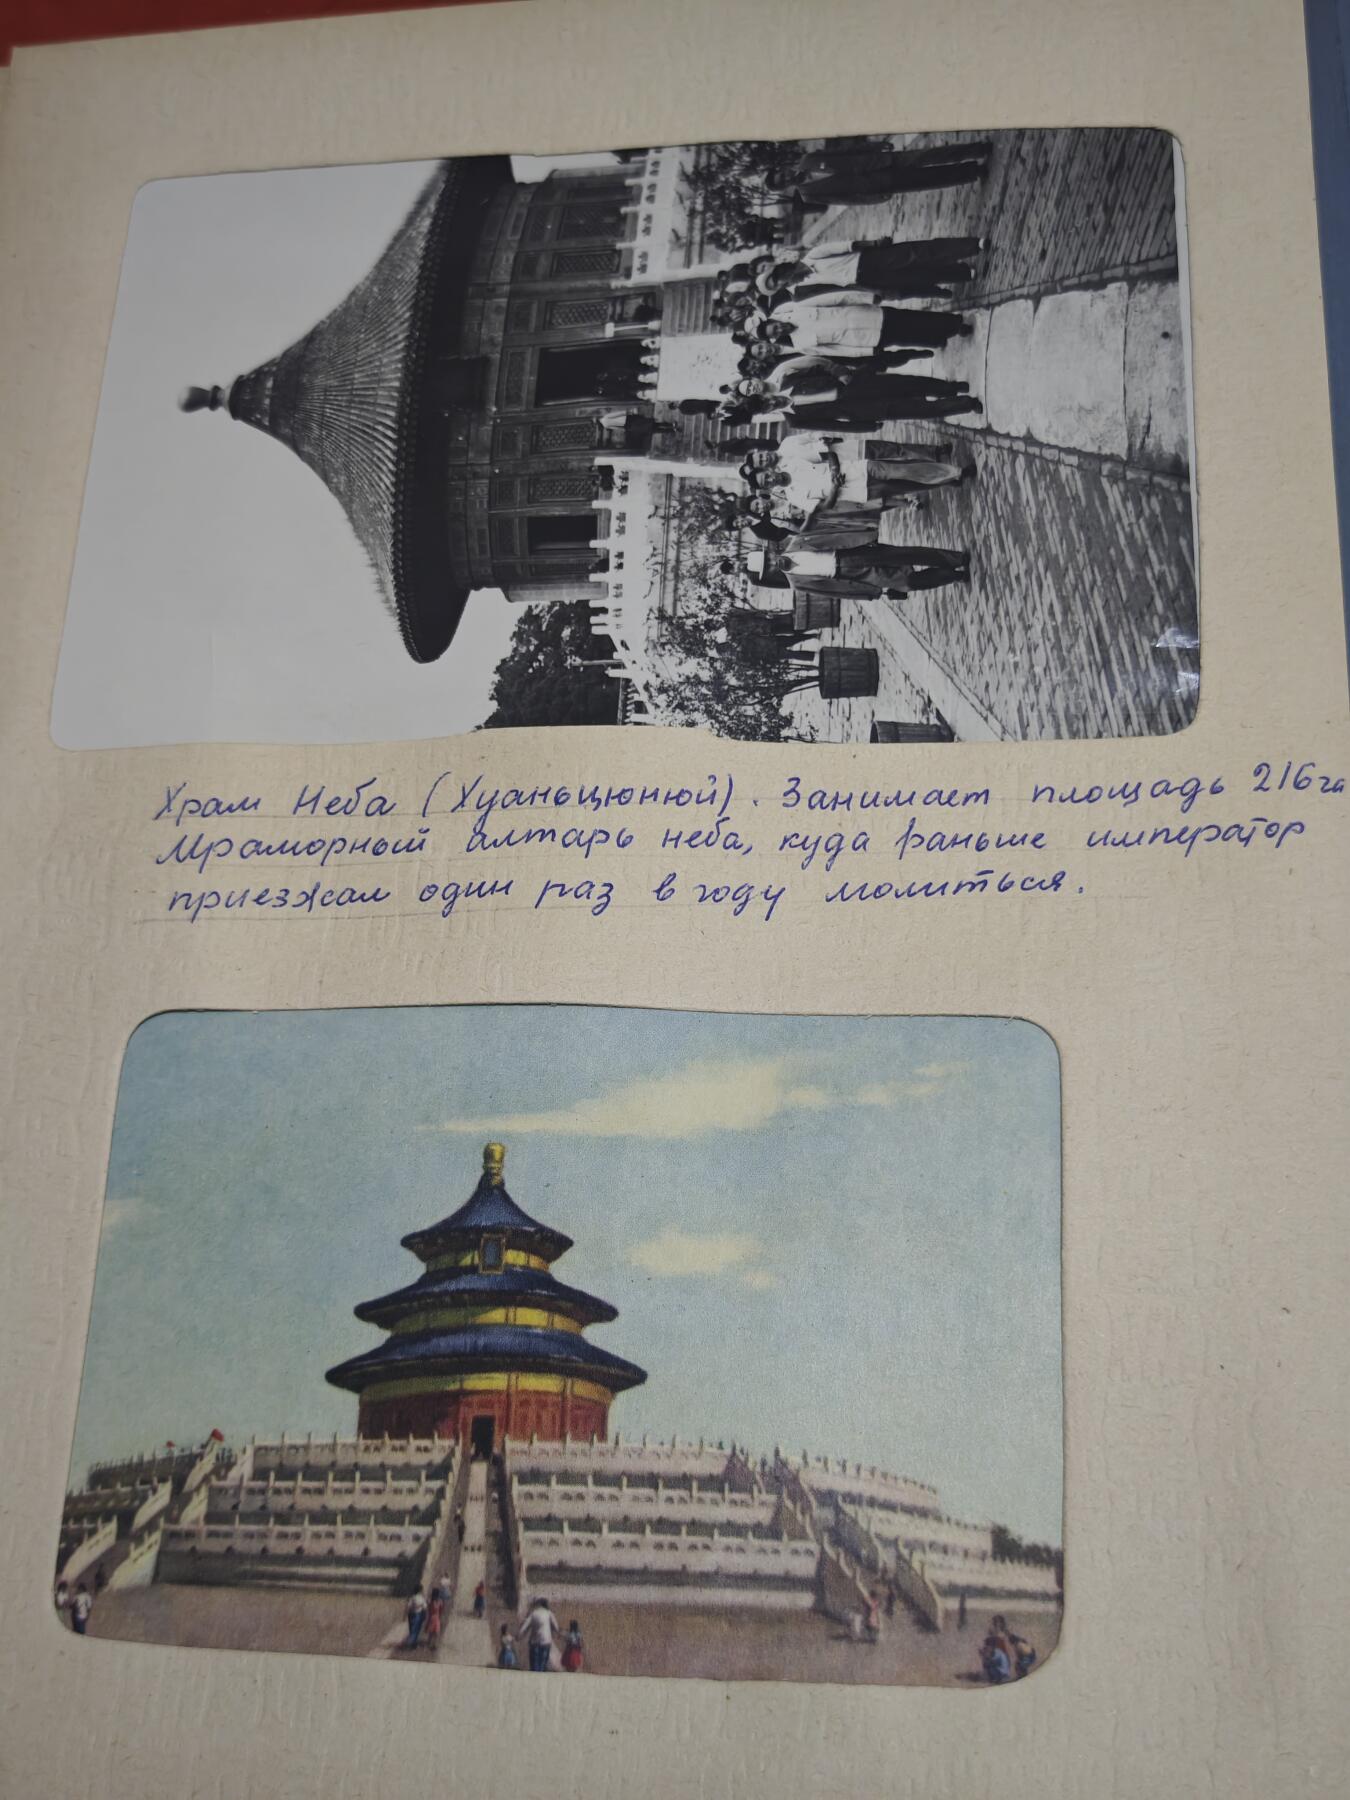 Храм Неба (Хуаньцюнюй). Занимает площадь 216га
Мраморный алтарь неба, куда раньше император
приезжал один раз в году молиться.